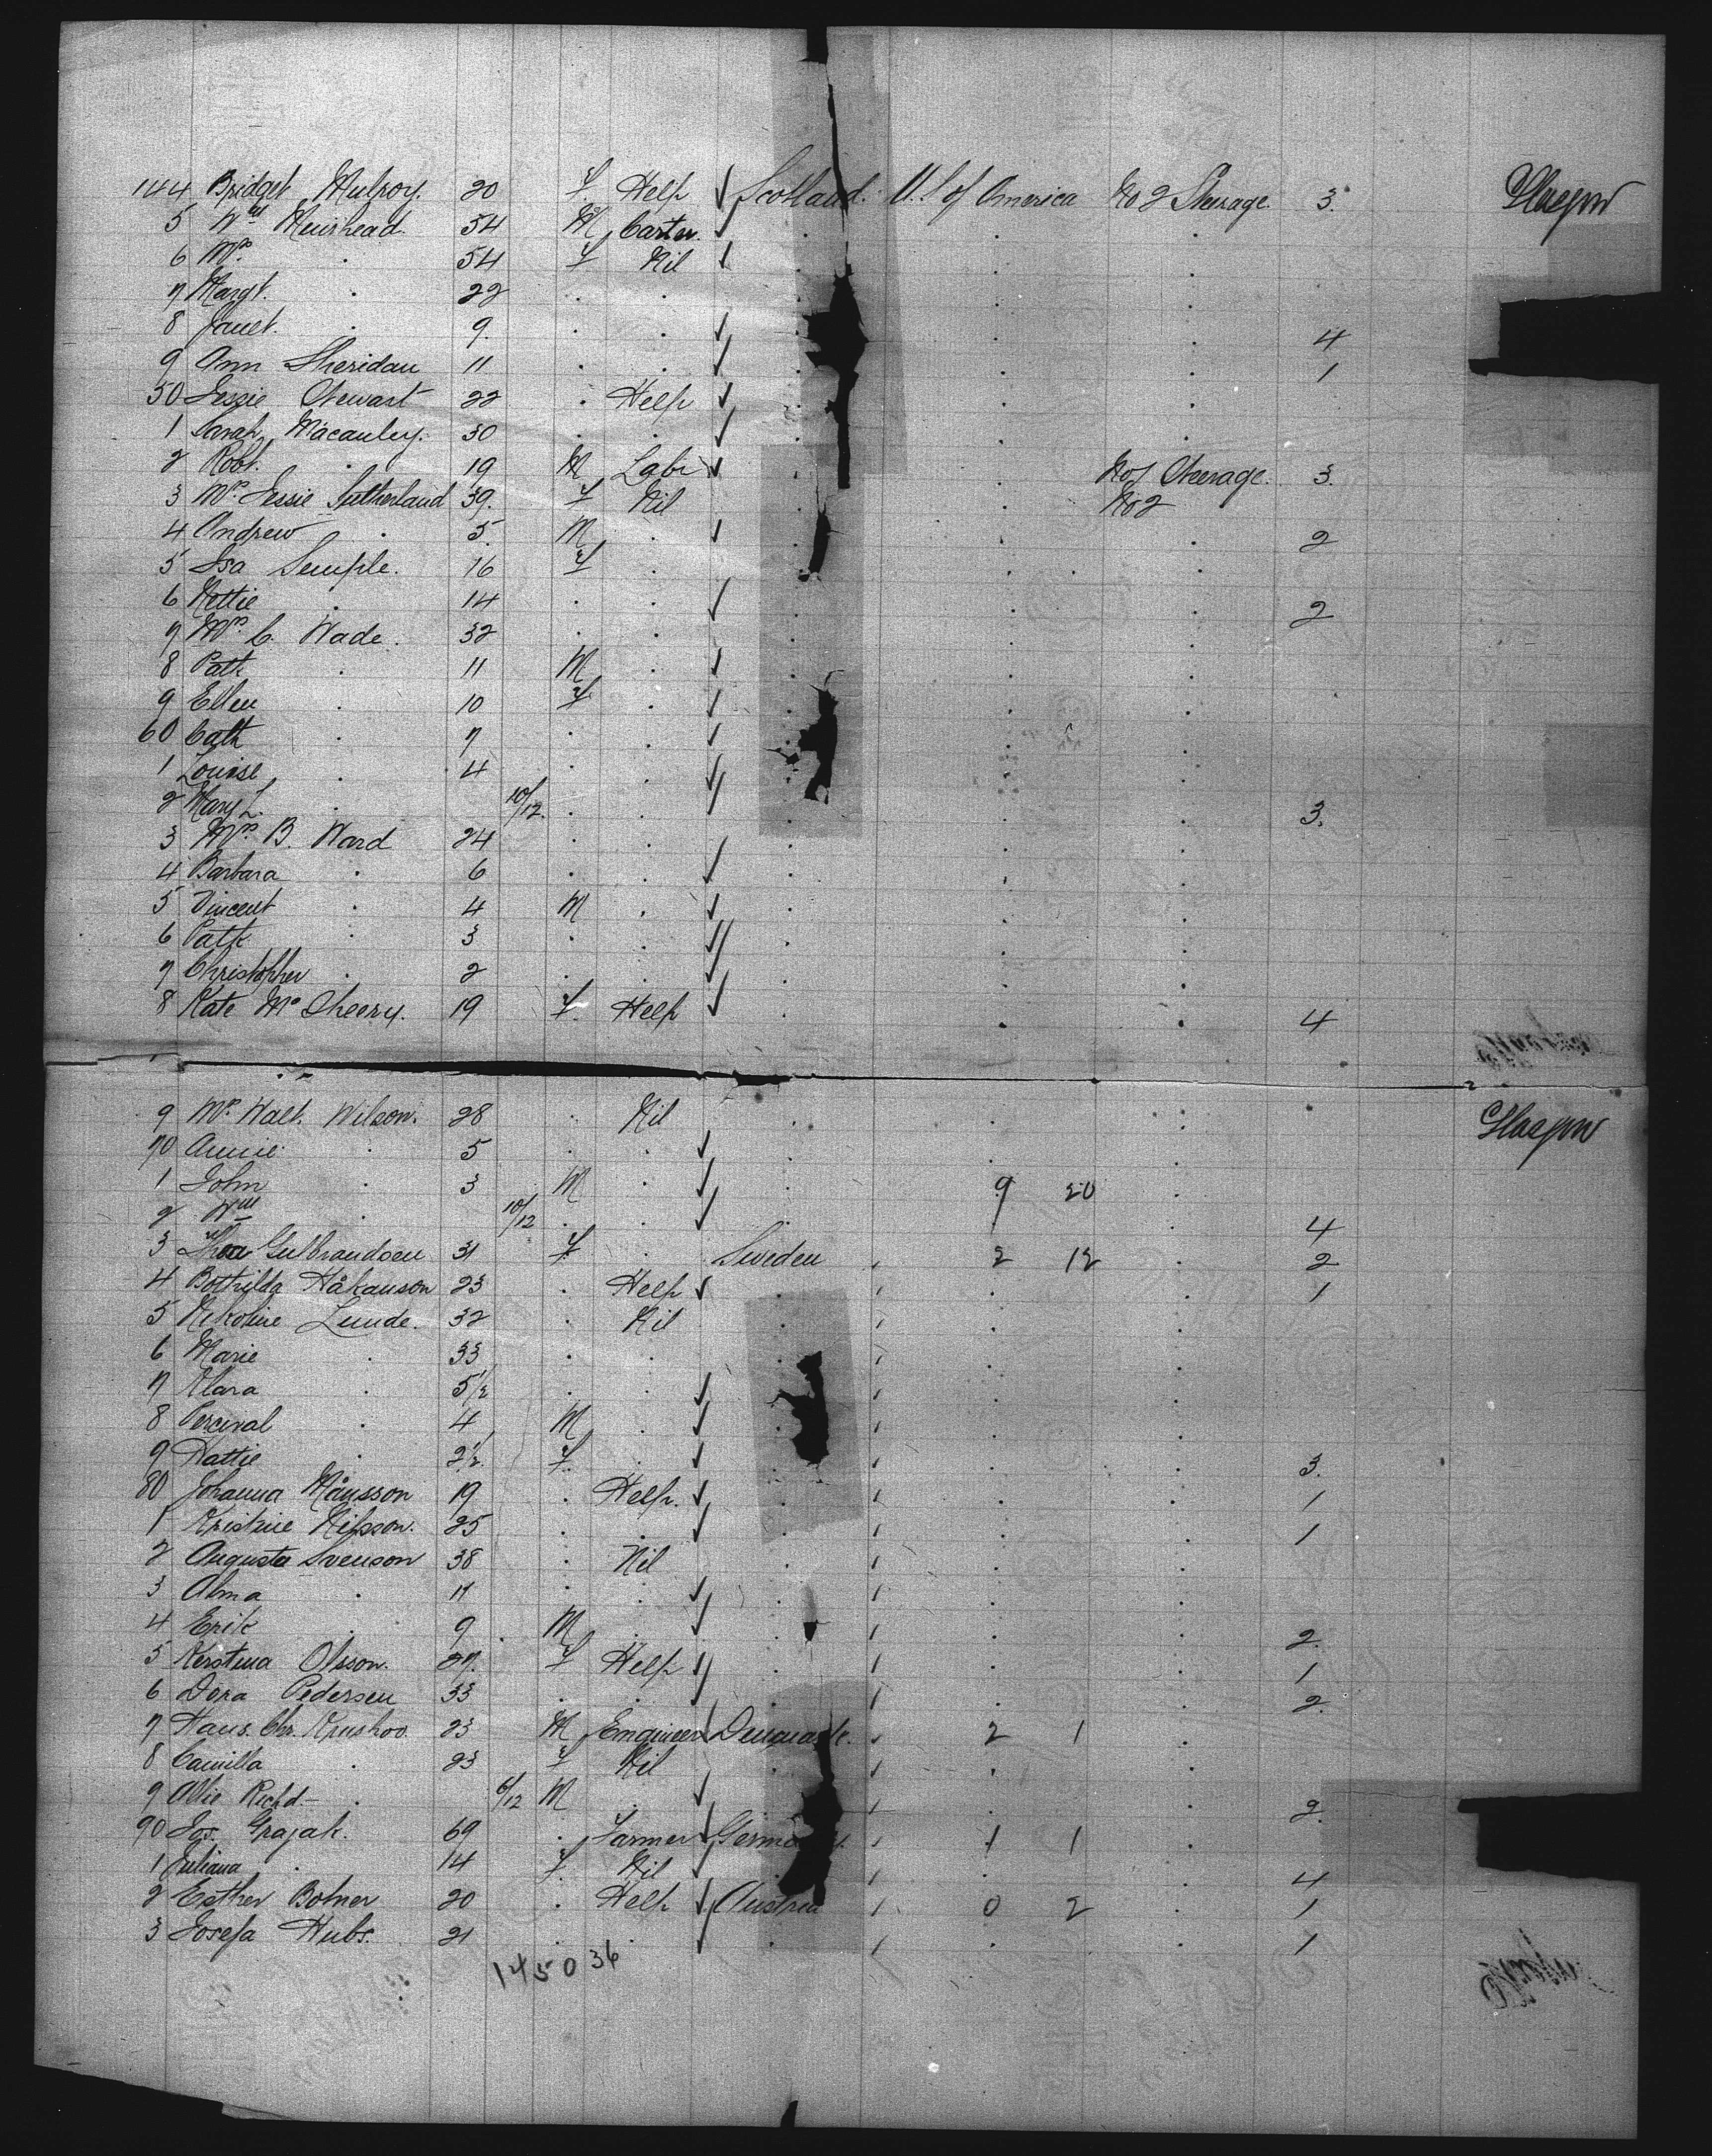 144 Bridget Mulroy. 20 f Help Scotland. U.S of America No 2 Steerage. 3. Glasgow
5 Wm Muirhead. 54 M Carter.
6 Mrs. . 54 f Nil
7 Margt. . 22
8 Janet. . 9. 4
9 Ann Sheridan 11 1
50 Jessie Stewart 22 . Help
1 Sarah Macauley. 30
2 Robt. . 19 M Labr No 1 Steerage. 3.
3 Mrs. Jessie Sutherland 39. f Nil No 2
4 Andrew . 5. M . 2
5 Isa Semple. 16 f .
6 Nettie . 14 2
7 Mrs. C. Wade. 32
8 Patk . 11 M
9 Ellen . 10 f
60 Cath . 7
1 Louise . 4
2 Mary L. . 10/12. 3.
3 Mrs. B. Ward 24
4 Barbara . 6
5 Vincent . 4 M
6 Patk . 3
7 Christopher . 2
8 Kate McSheery. 19 f. Help 4
9 Mrs. Walt. Wilson. 28 . Nil Glasgow
70 Annie . 5
1 John . 3 M 9 20
2 Wm . 10/12 4
3 Gulbrandsen 31 f Sweden 2 12 2
4 Bothilda Håkanson 23 . Help 1
5 Nikoline Lunde. 32 . Nil
6 Marie . 33
7 Klara . 5 1/2
8 Percival . 4 M
9 Hattie . 2 1/2 f 3.
80 Johanna Månsson 19 . Help. 1
1 Kristine Nilsson. 25 1
2 Augusta Svenson 38 . Nil
3 Alma . 11
4 Erik . 9 . M 2.
5 Kerstina Olsson. 27. f Help 1
6 Dora Pedersen 33 2.
7 Hans. Chr. 23 M Engineer Denmark. 2 1
8 Camilla . 23 f Nil
9 Richd . 6/12 M 2.
90 Jos. Grajak. 69 . Farmer Germany. 1 1
1 Juliana . 14 f Nil 4
2 Esther Bomer 20 . Help Austria 0 2 1
3 Josefa Hubs. 21 1
145036